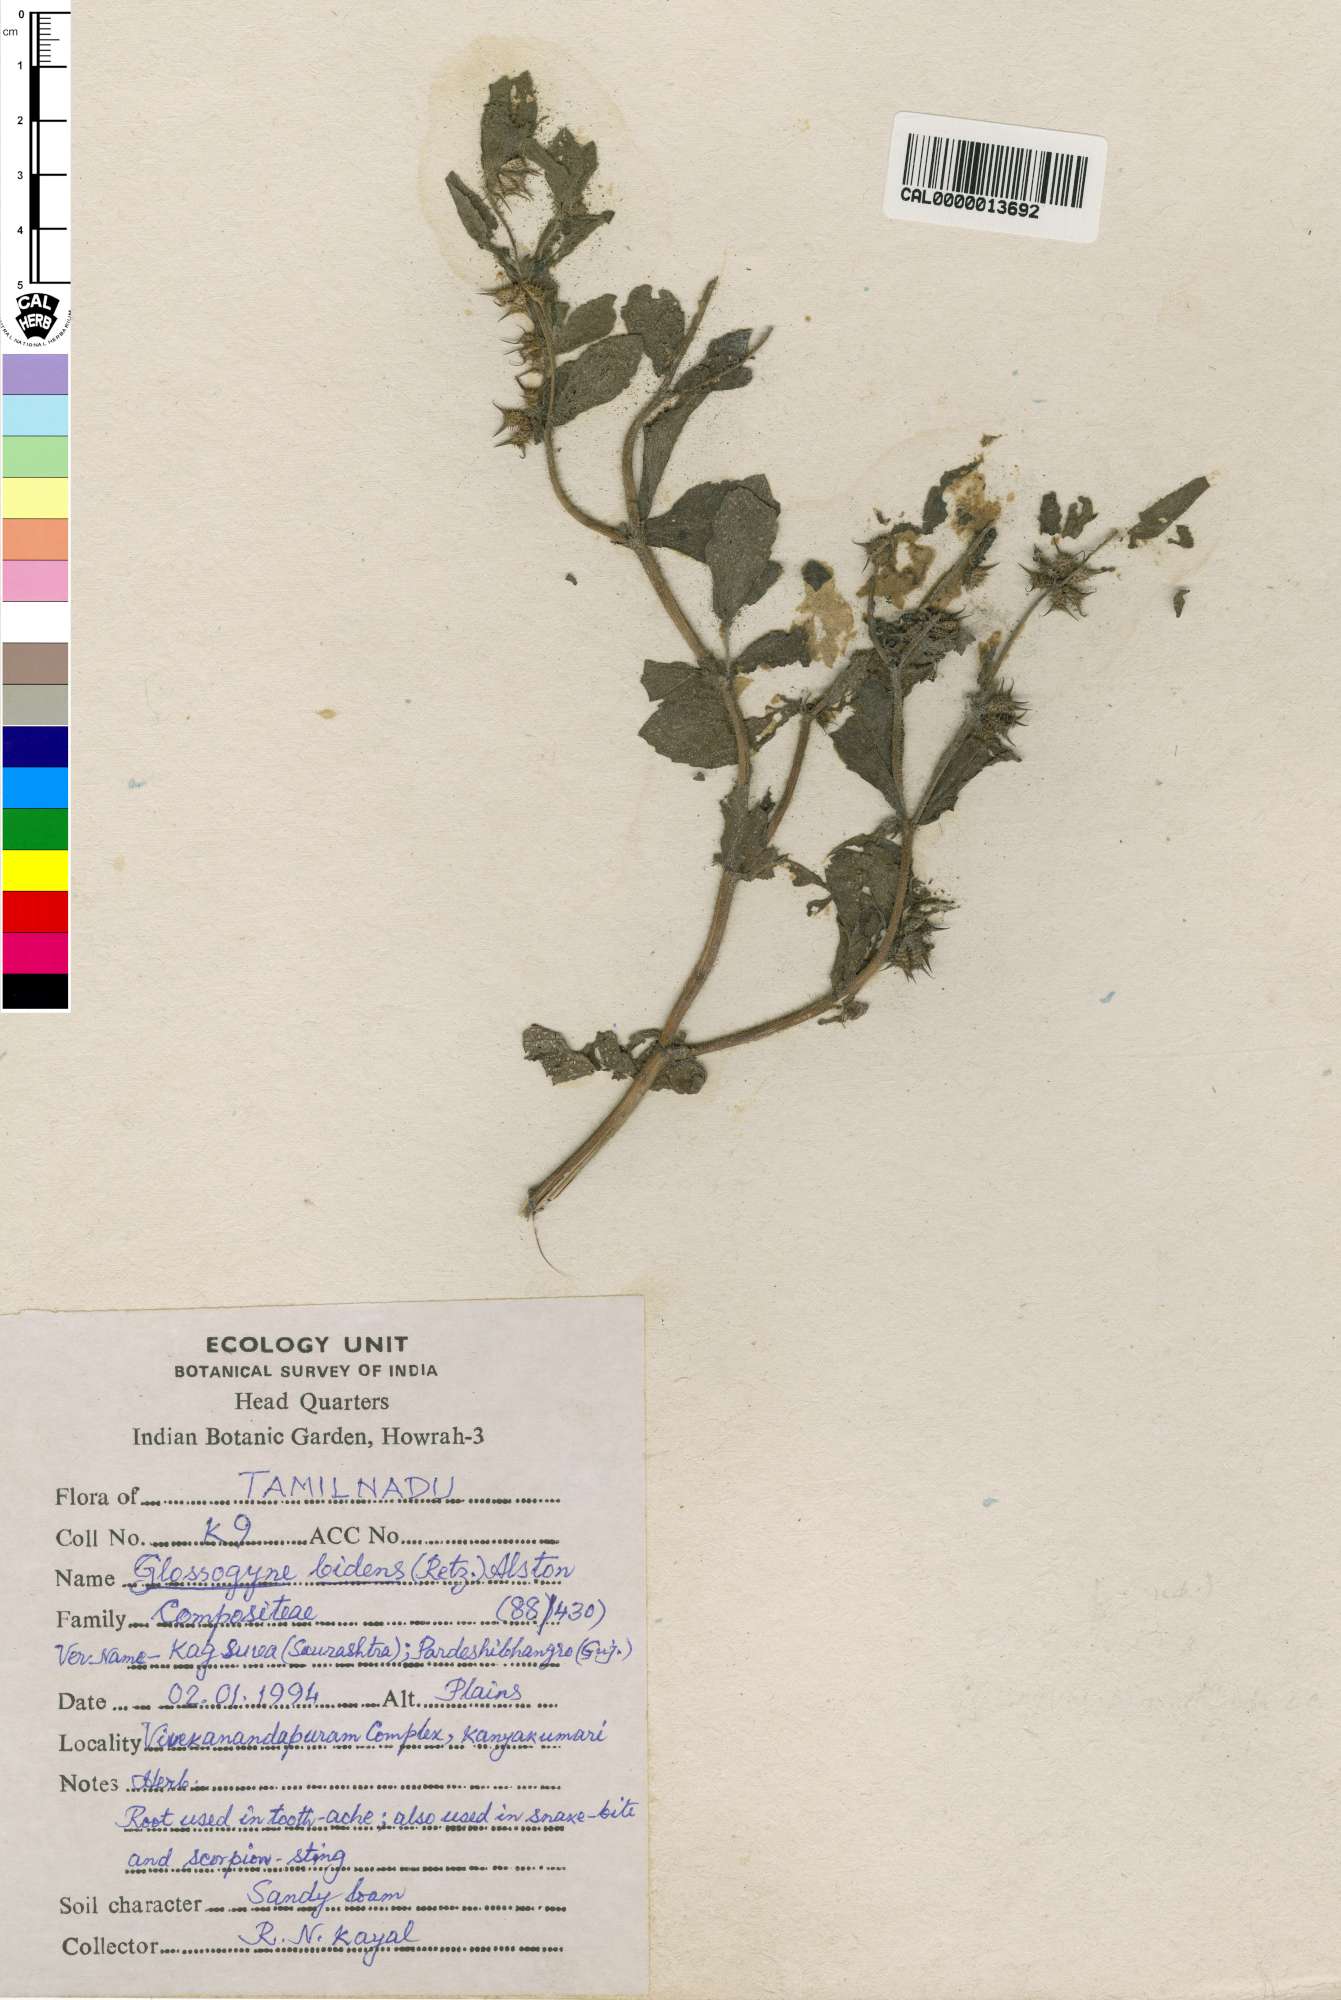 0
cm
1
2
3
4
5
CAL
HERB
CENTRAL NATIONAL HERBARIUM
CAL0000013692
ECOLOGY UNIT
BOTANICAL SURVEY OF INDIA
Head Quarters
Indian Botanic Garden, Howrah-3
Flora of TAMILNADU
Coll No. K9 ACC No.
Name Glossogyne bidens (Retz.) Alston
Family Compositeae (88/430)
Ver. Name - Kag surea (Saurashtra); Pardeshibhangro (Guj.)
Date 02.01.1994 Alt. Plains
Locality Vivekanandapuram Complex, Kanyakumari
Notes Herb.
Root used in tooth-ache; also used in snake-bite
and scorpion-sting
Soil character Sandy loam
Collector R. N. Kayal